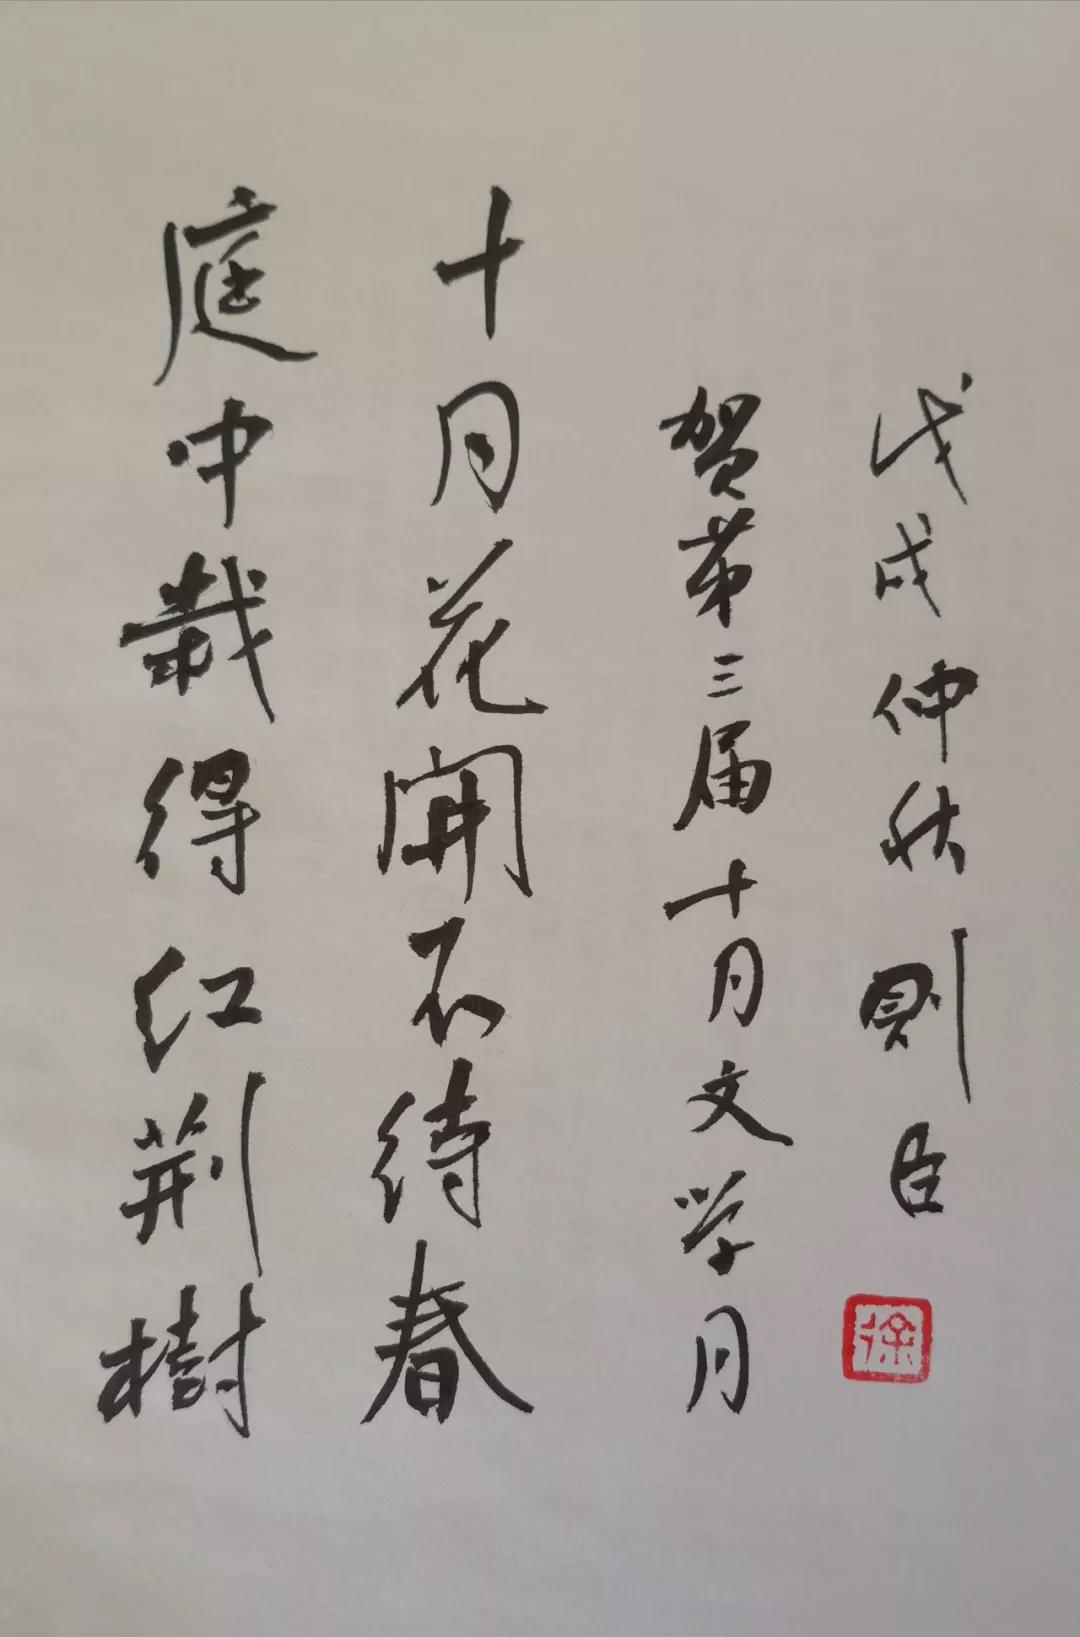 庭中栽得红荆樹
十月花開不待春
贺第三届十月文学月
戊戌仲秋 則臣
徐